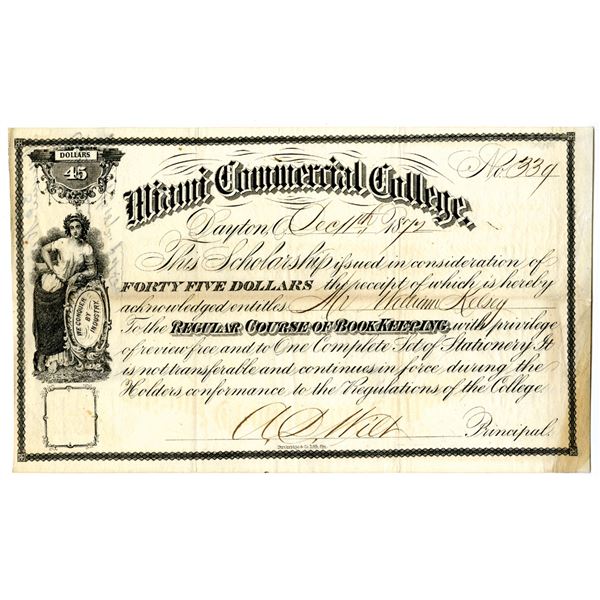 DOLLARS
45
No. 339
Miami Commercial College.
Dayton, O. Dec 11th 1872
This Scholarship issued in consideration of
FORTY FIVE DOLLARS the receipt of which is hereby
acknowledged entitles Mr William Kelsey
To the REGULAR COURSE OF BOOKKEEPING, with privilege
of review free and to One Complete Set of Stationery. It
is not transferable and continues in force during the
Holders conformance to the Regulations of the College.
WE CONQUER
BY
INDUSTRY.
A D Wilt Principal.